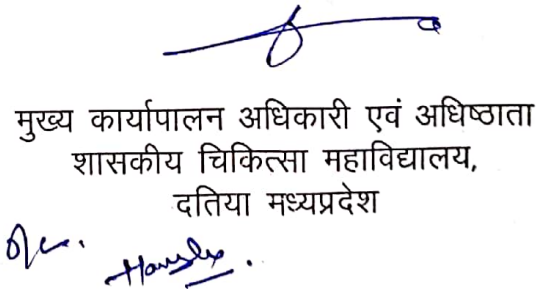 मुख्य कार्यापालन अधिकारी एवं अधिष्ठाता
शासकीय चिकित्सा महाविद्यालय,
दतिया मध्यप्रदेश